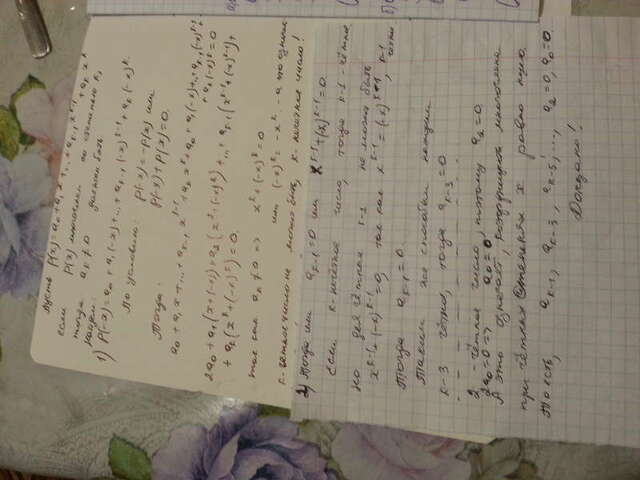 Пусть P(x) = a₀ + a₁x + ... + a_{k-1}x^{k-1} + a_k x^k
если P(x) многочлен по степеням x,
тогда a_k ≠ 0 должны быть
1) P(-x) = a₀ + a₁(-x) + ... + a_{k-1}(-x)^{k-1} + a_k(-x)^k.
По условию: P(-x) = -P(x) или
P(-x) + P(x) = 0.
Тогда:
a₀ + a₁x + ... + a_{k-1}x^{k-1} + a_k x^k + a₀ + a₁(-x) + ... + a_{k-1}(-x)^{k-1} +
+ a_k(-x)^k = 0
2a₀ + a₁(x + (-x)) + a₂(x² + (-x)²) + ... + a_{k-1}(x^{k-1} + (-x)^{k-1}) +
+ a_k(x^k + (-x)^k) = 0.
так как a_k ≠ 0 => x^k + (-x)^k = 0
или (-x)^k = -x^k - а это означает
k - четное число не может быть, k - нечётное число!
2) Тогда или a_{k-1} = 0 или x^{k-1} + (-x)^{k-1} = 0.
Если k - нечётное число, тогда k-1 - чётное.
Но для чётных k-1 не может быть
x^{k-1} + (-x)^{k-1} = 0, так как x^{k-1} = (-x)^{k-1},
Тогда a_{k-1} = 0.
Таким же способом находим
k-3 чётное, тогда a_{k-3} = 0
2 - чётное число, поэтому a₂ = 0.
2a₀ = 0 => a₀ = 0
А это означает, коэффициент многочлена
при чётных степенях x равно нулю
То есть, a_{k-1}, a_{k-3}, a_{k-5}, ..., a₂ = 0, a₀ = 0.
Доказано!